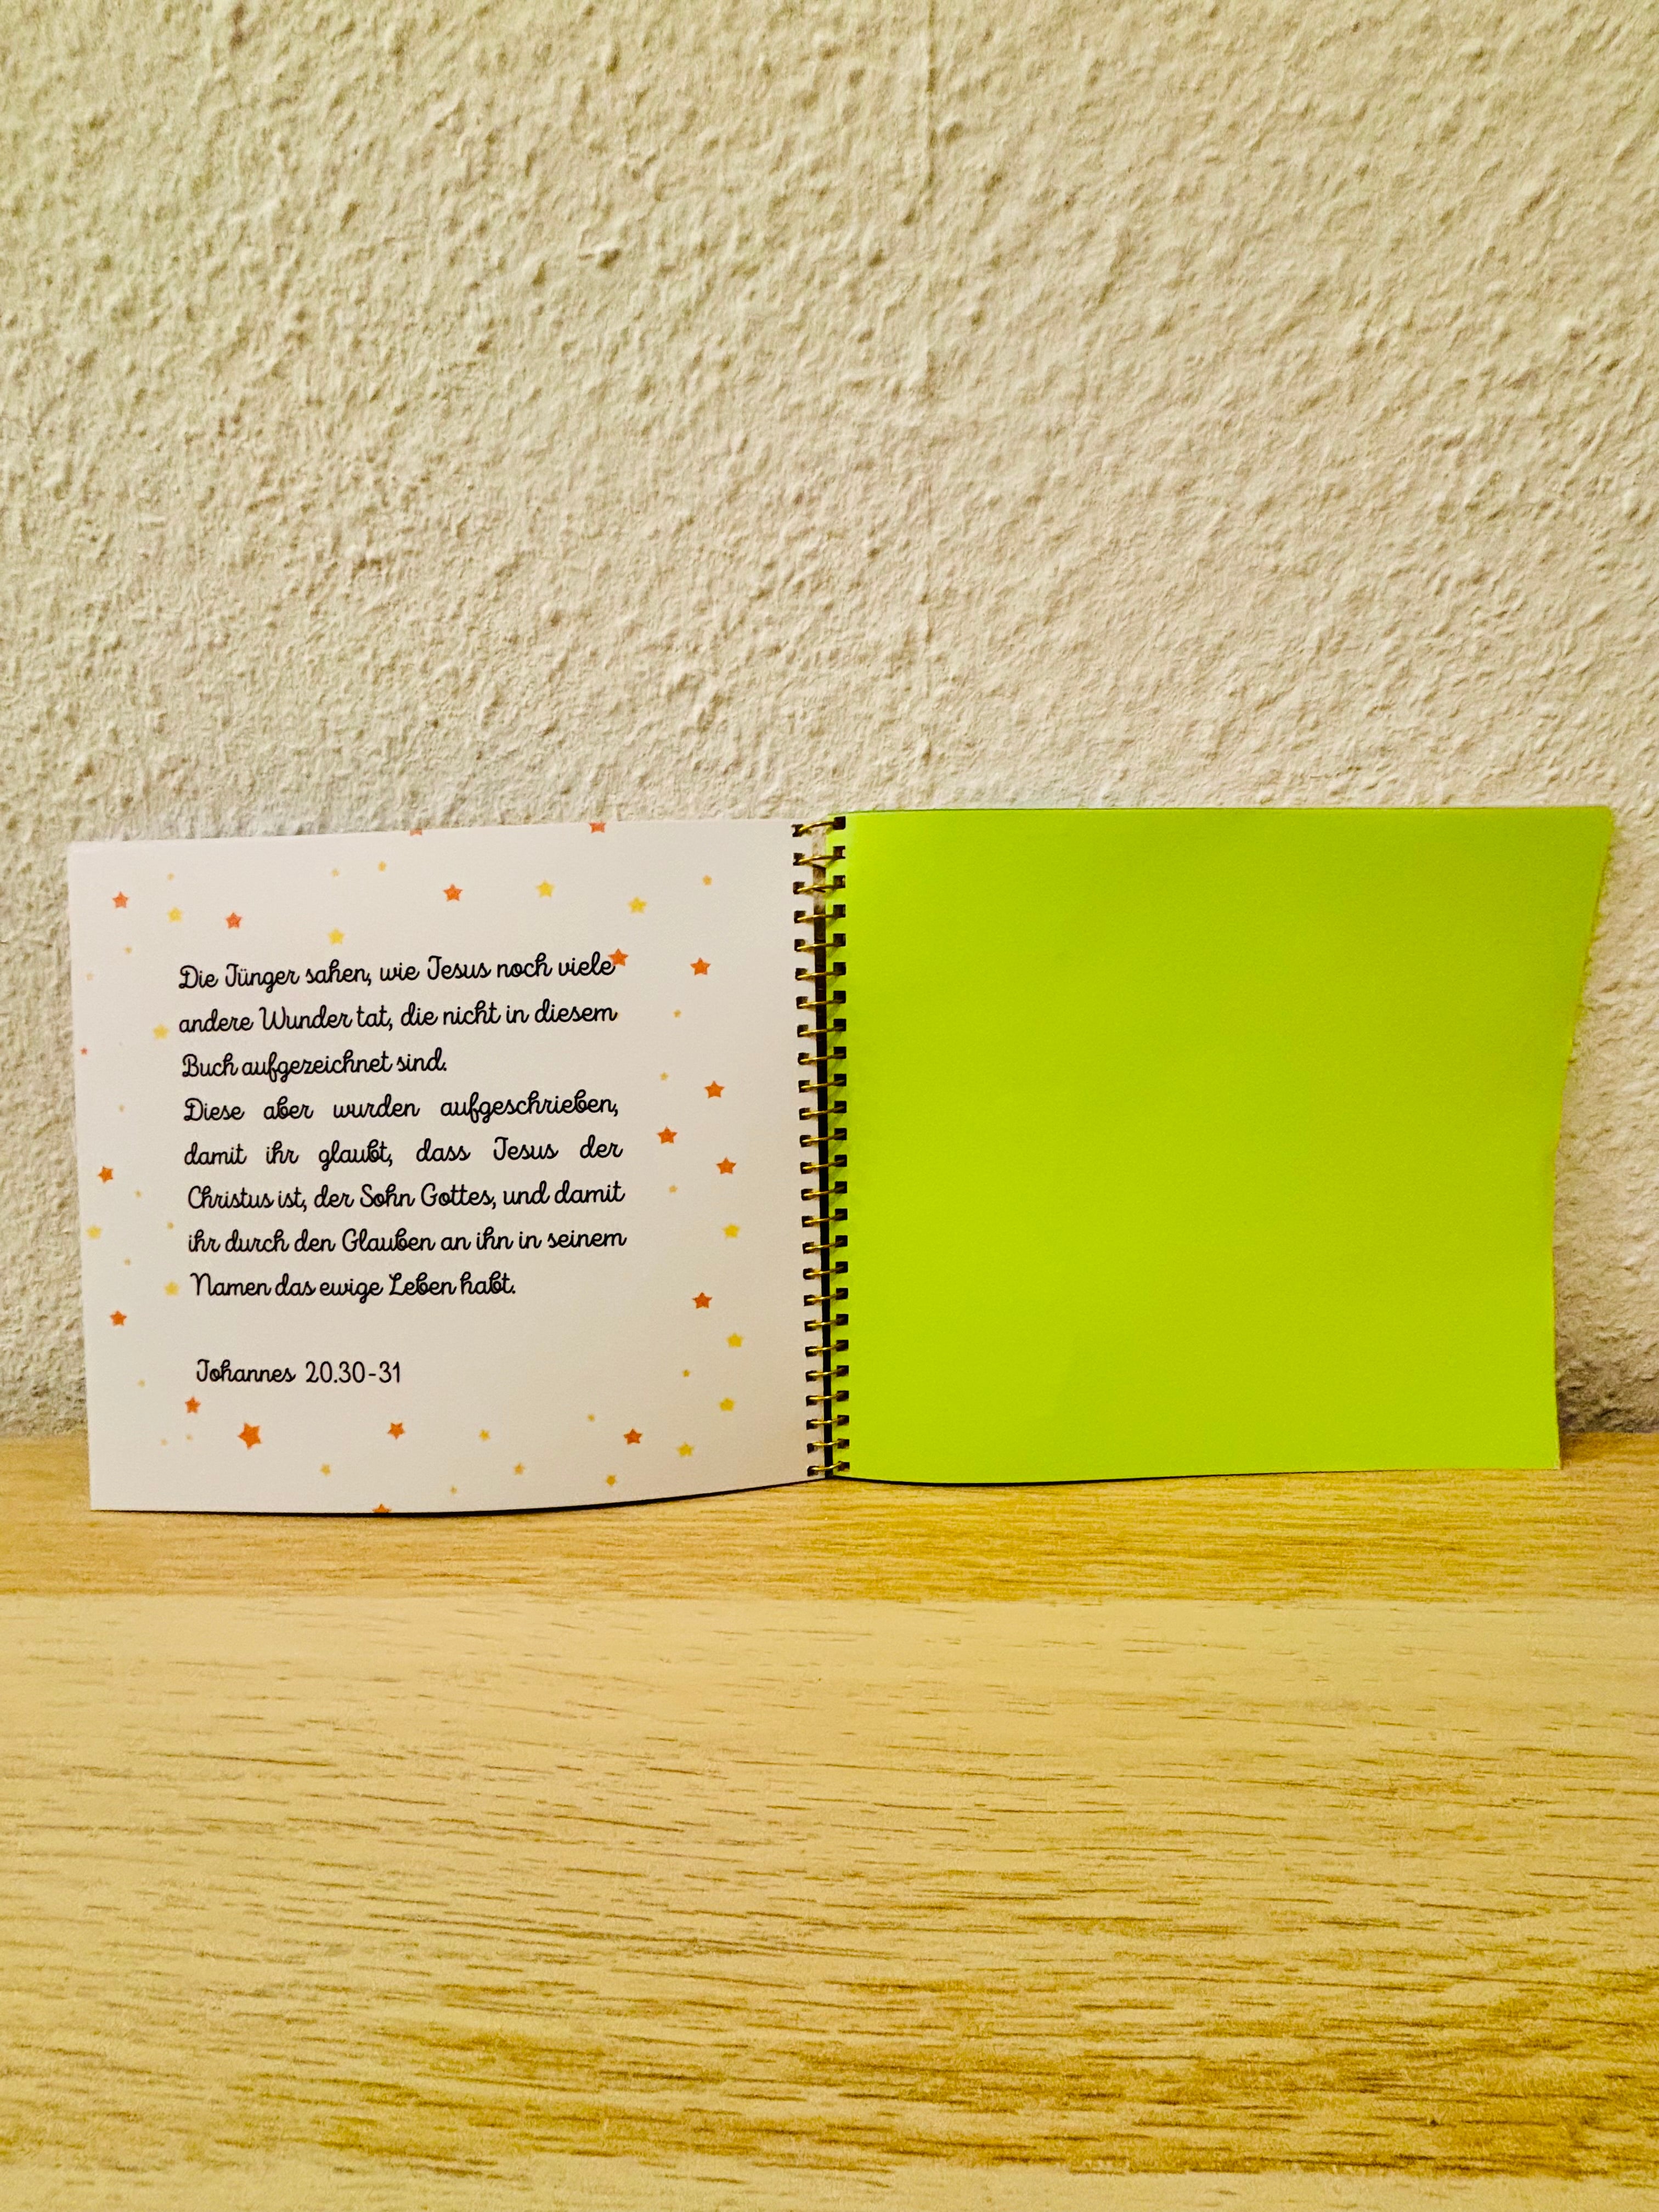 Die Jünger sahen, wie Jesus noch viele
andere Wunder tat, die nicht in diesem
Buch aufgezeichnet sind.
Diese aber wurden aufgeschrieben,
damit ihr glaubt, dass Jesus der
Christus ist, der Sohn Gottes, und damit
ihr durch den Glauben an ihn in seinem
Namen das ewige Leben habt.
Johannes 20.30-31